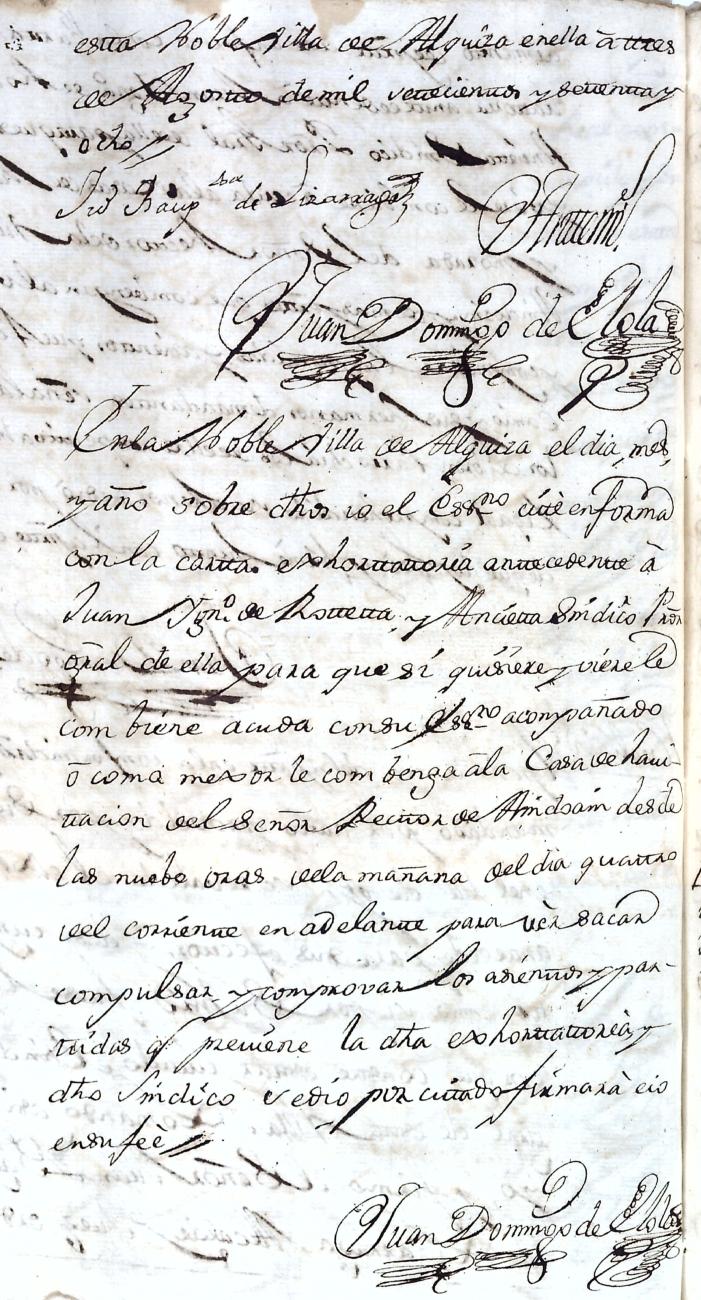 esta Noble Villa de Alquiza en ella à tres
de Agosto de mil setecientos y setenta y
ocho
Juº Baup.ta de Lizarraga
Antemi
Juan Domingo de Elola
En la Noble Villa de Alquiza el dia, mes,
y año sobre dhos io el Essno citè en forma
con la carta exhortatoria antecedente à
Juan Ygnº de Rotteta, y Ancieta Sindico Pror
Gral de ella para que si quisiere y viere le
combiene acuda con su Essno acompañado
ò como mexor le combenga à la Casa de havi-
tacion del Señor Rector de Aindoain desde
las nuebe oras dela mañana del dia quattro
del corriente en adelante para vèr sacar
compulsar y comprovar los asientos y par-
tidas q previene la dha exhortatoria, y
dho Sindico se dio por citado firmarà e io
en su feè
Juan Domingo de Elola